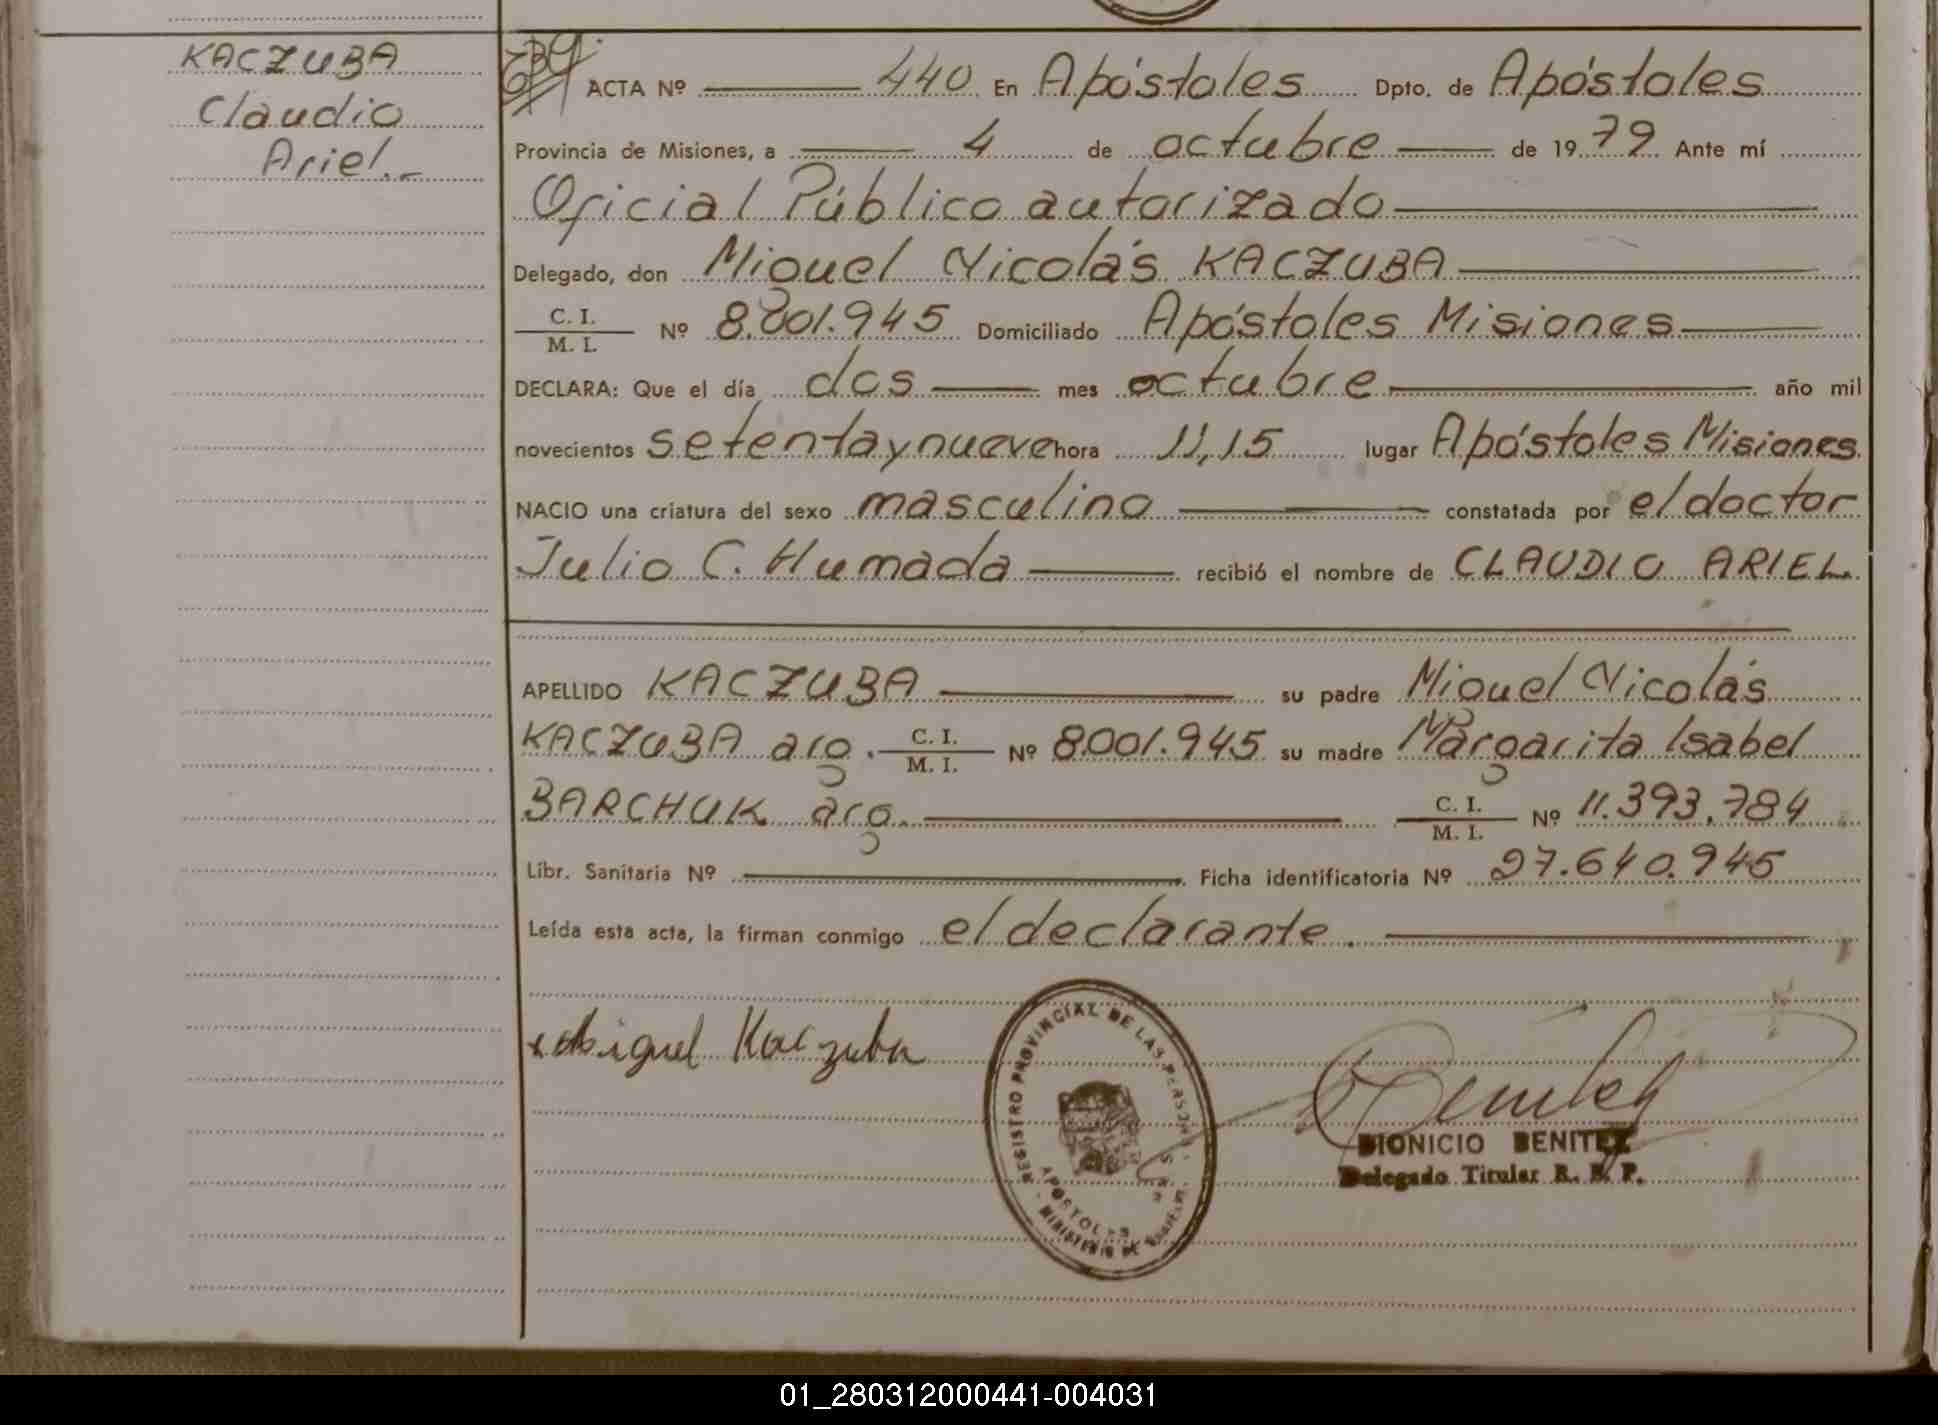 KACZUBA
Claudio
Ariel.-
639
ACTA Nº 440 En Apóstoles Dpto. de Apóstoles
Provincia de Misiones, a 4 de octubre de 1979 Ante mí
Oficial Público autorizado
Delegado, don Miguel Nicolás KACZUBA
C. I.
M. I. Nº 8.001.945 Domiciliado Apóstoles Misiones
DECLARA: Que el día dos mes octubre año mil
novecientos setenta y nueve hora 11,15 lugar Apóstoles Misiones
NACIO una criatura del sexo masculino constatada por el doctor
Julio C. Humada recibió el nombre de CLAUDIO ARIEL
APELLIDO KACZUBA su padre Miguel Nicolás
KACZUBA arg. C. I. M. I. Nº 8.001.945 su madre Margarita Isabel
BARCHUK arg. C. I. M. I. Nº 11.393.784
Libr. Sanitaria Nº Ficha identificatoria Nº 27.640.945
Leída esta acta, la firman conmigo el declarante.
Miguel Kaczuba
REGISTRO PROVINCIAL DE LAS PERSONAS
APOSTOLES
MINISTERIO DE
DIONICIO BENITEZ
Delegado Titular R. P. P.
01_280312000441-004031